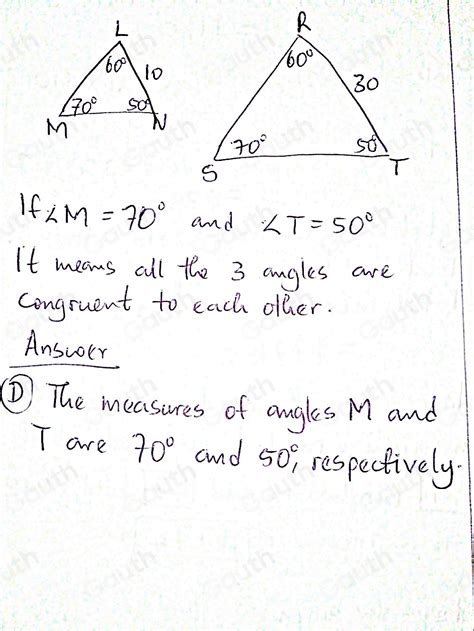 L
60° 10
70° 50°
M N
R
60°
30
70° 50°
S T
If ∠M = 70° and ∠T = 50°
It means all the 3 angles are
congruent to each other.
Answer
Ⓓ The measures of angles M and
T are 70° and 50°, respectively.
Gauth